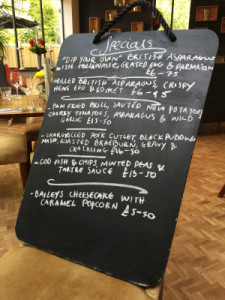 Specials
"DIP YOUR OWN" BRITISH ASPARAGUS
WITH HOLLANDAISE, GRATED EGG & PARMESAN
£6-75
GRILLED BRITISH ASPARAGUS, CRISPY
HENS EGG & £6-95
PAN FRIED BRILL, SAUTED NEW POTATOES
CHERRY TOMATOES, ASPARAGUS & WILD
GARLIC £15-50
CHARGRILLED PORK CUTLET, BLACK PUDDING
MASH, ROASTED BRAEBURN, GRAVY &
CRACKLING £16-50
COD FISH & CHIPS, MINTED PEAS &
TARTRE SAUCE £13-50
BAILEYS CHEESECAKE WITH
CARAMEL POPCORN £5-50